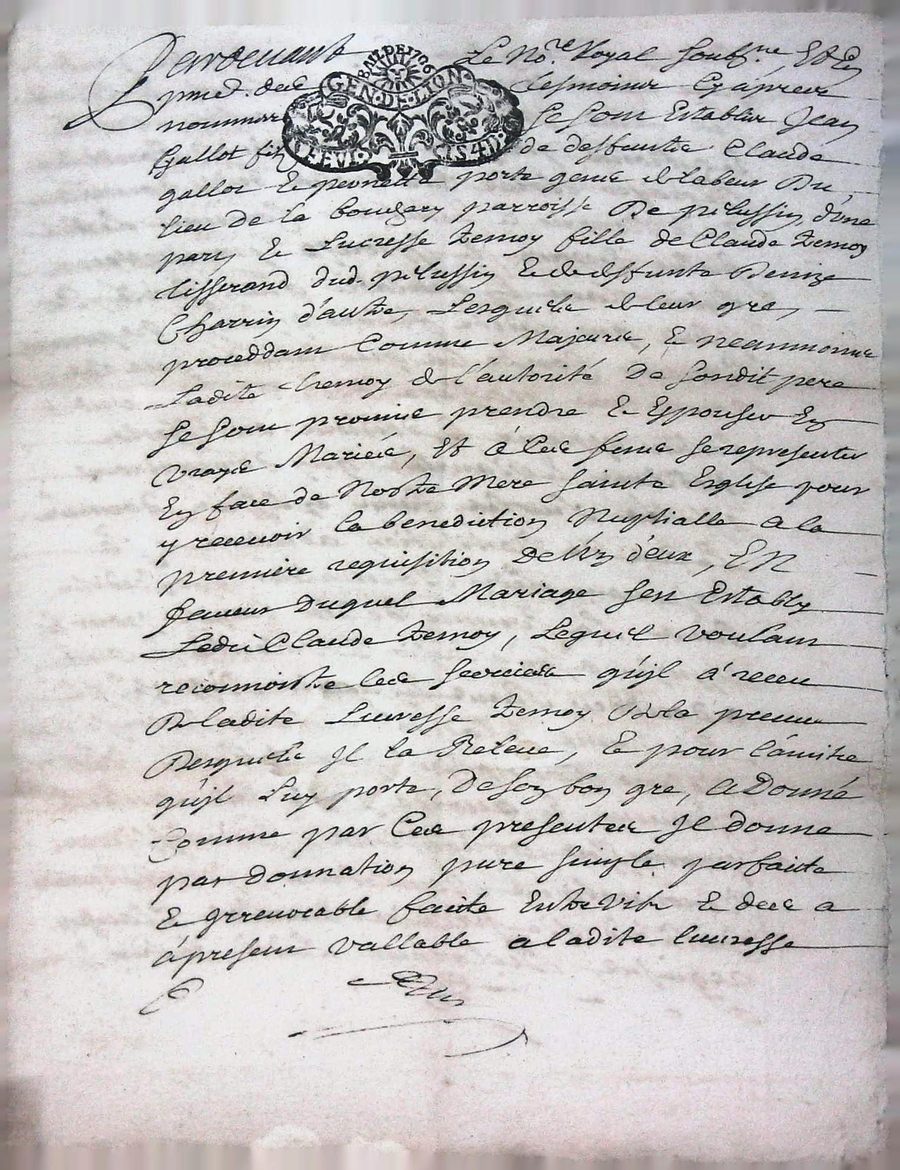 Pardevant Le No.re Royal Soub.ne Et En
BAIL DE 1706
GEN·DE·LION·
pnce. des tesmoins Cy apres
nommes Se sont Establis Jean
Gallot fils de deffuncts Claude
gallot & pernette porte gens de labeur Du
lieu de la parroisse De pelussin d'une
part, & Lucresse Zemoy fille de Claude Zemoy
tisserand dud. pelussin & de deffunte Denize
Charrin d'autre, Lesquels de leur gre,
proceddant Comme Majeurs, & neanmoins
Ladite Zemoy de l'autorité De Sondit pere
Se sont promis prendre & Epouser En
vrays Mariés, Et à Ces fins se representer
En face de Nostre Mere Sainte Eglise pour
y recevoir la benediction Nuptialle a la
premiere requisition De l'Un d'eux, EN
faveur Duquel Mariage s'en Estably
Ledit Claude Zemoy, Lequel voulant
reconnoistre les services qu'il a receu
De ladite Lucresse Zemoy De la preuve
Desquels Il la Releve, & pour l'amitie
qu'il Luy porte, De son bon gre, a Donné
Comme par Ces presentes Il donne
par donnation pure simple parfaite
& Irrevocable faite Entre vifs & des a
à present vallable a ladite lucresse